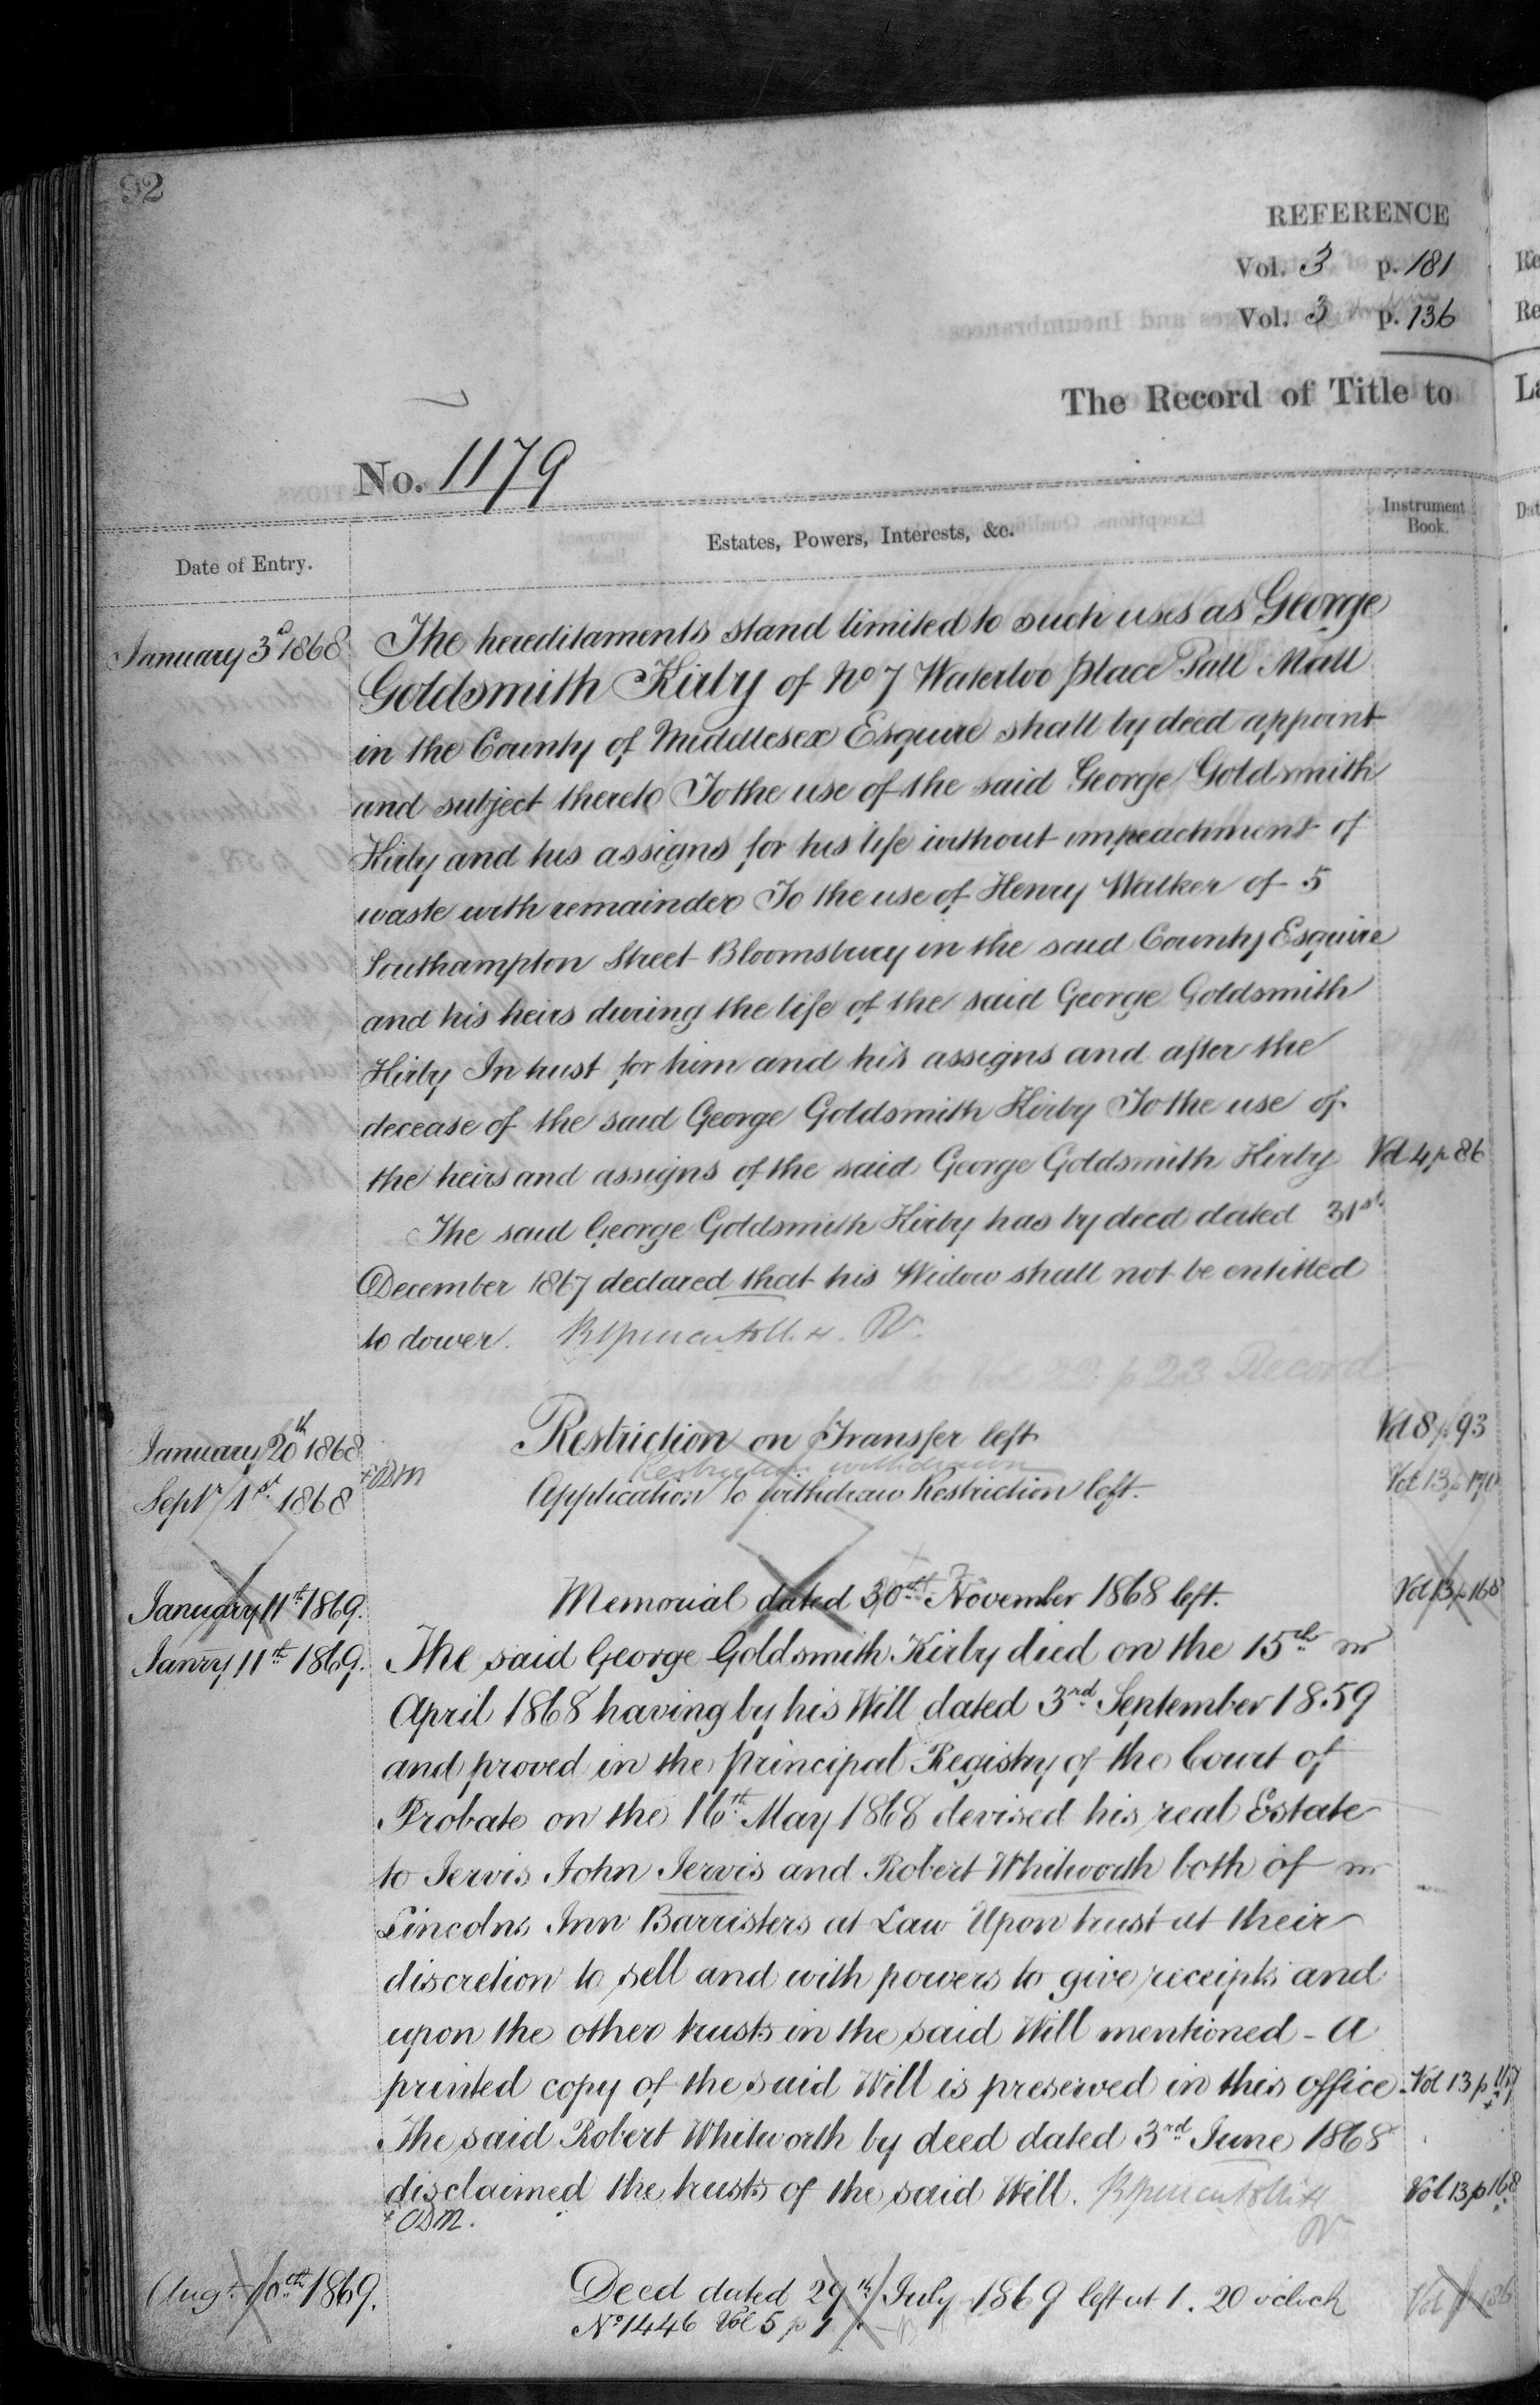 92
REFERENCE
Vol. 3 p. 181
Vol. 3 p. 136
The Record of Title to
No. 1179
Date of Entry.
Estates, Powers, Interests, &c.
Instrument Book.
January 3d 1868
The hereditaments stand limited to such uses as George
Goldsmith Kirby of No 7 Waterloo place Pall Mall
in the County of Middlesex Esquire shall by deed appoint
and subject thereto To the use of the said George Goldsmith
Kirby and his assigns for his life without impeachment of
waste with remainder To the use of Henry Walker of 5
Southampton Street Bloomsbury in the said County Esquire
and his heirs during the life of the said George Goldsmith
Kirby In trust for him and his assigns and after the
decease of the said George Goldsmith Kirby To the use of
the heirs and assigns of the said George Goldsmith Kirby Vol 4 p 86
The said George Goldsmith Kirby has by deed dated 31st
December 1867 declared that his Widow shall not be entitled
to dower.
January 20th 1868 Restriction on Transfer left Vol 8 p 93
+ODM
Restriction withdrawn
Septr 1st 1868 Application to withdraw Restriction left. Vol 13 p 170
January 11th 1869. Memorial dated 30th November 1868 left. Vol 13 p 168
Janry 11th 1869. The said George Goldsmith Kirby died on the 15th
April 1868 having by his Will dated 3rd September 1859
and proved in the principal Registry of the Court of
Probate on the 16th May 1868 devised his real Estate
to Jervis John Jervis and Robert Whitworth both of
Lincolns Inn Barristers at Law Upon trust at their
discretion to sell and with powers to give receipts and
upon the other trusts in the said Will mentioned - A
printed copy of the said Will is preserved in this office. Vol 13 p 167
The said Robert Whitworth by deed dated 3rd June 1868
disclaimed the trusts of the said Will. Vol 13 p 168
+ ODM.
Augt 10th 1869. Deed dated 29th July 1869 left at 1.20 o'clock
No 1446 Vol 5 p 1